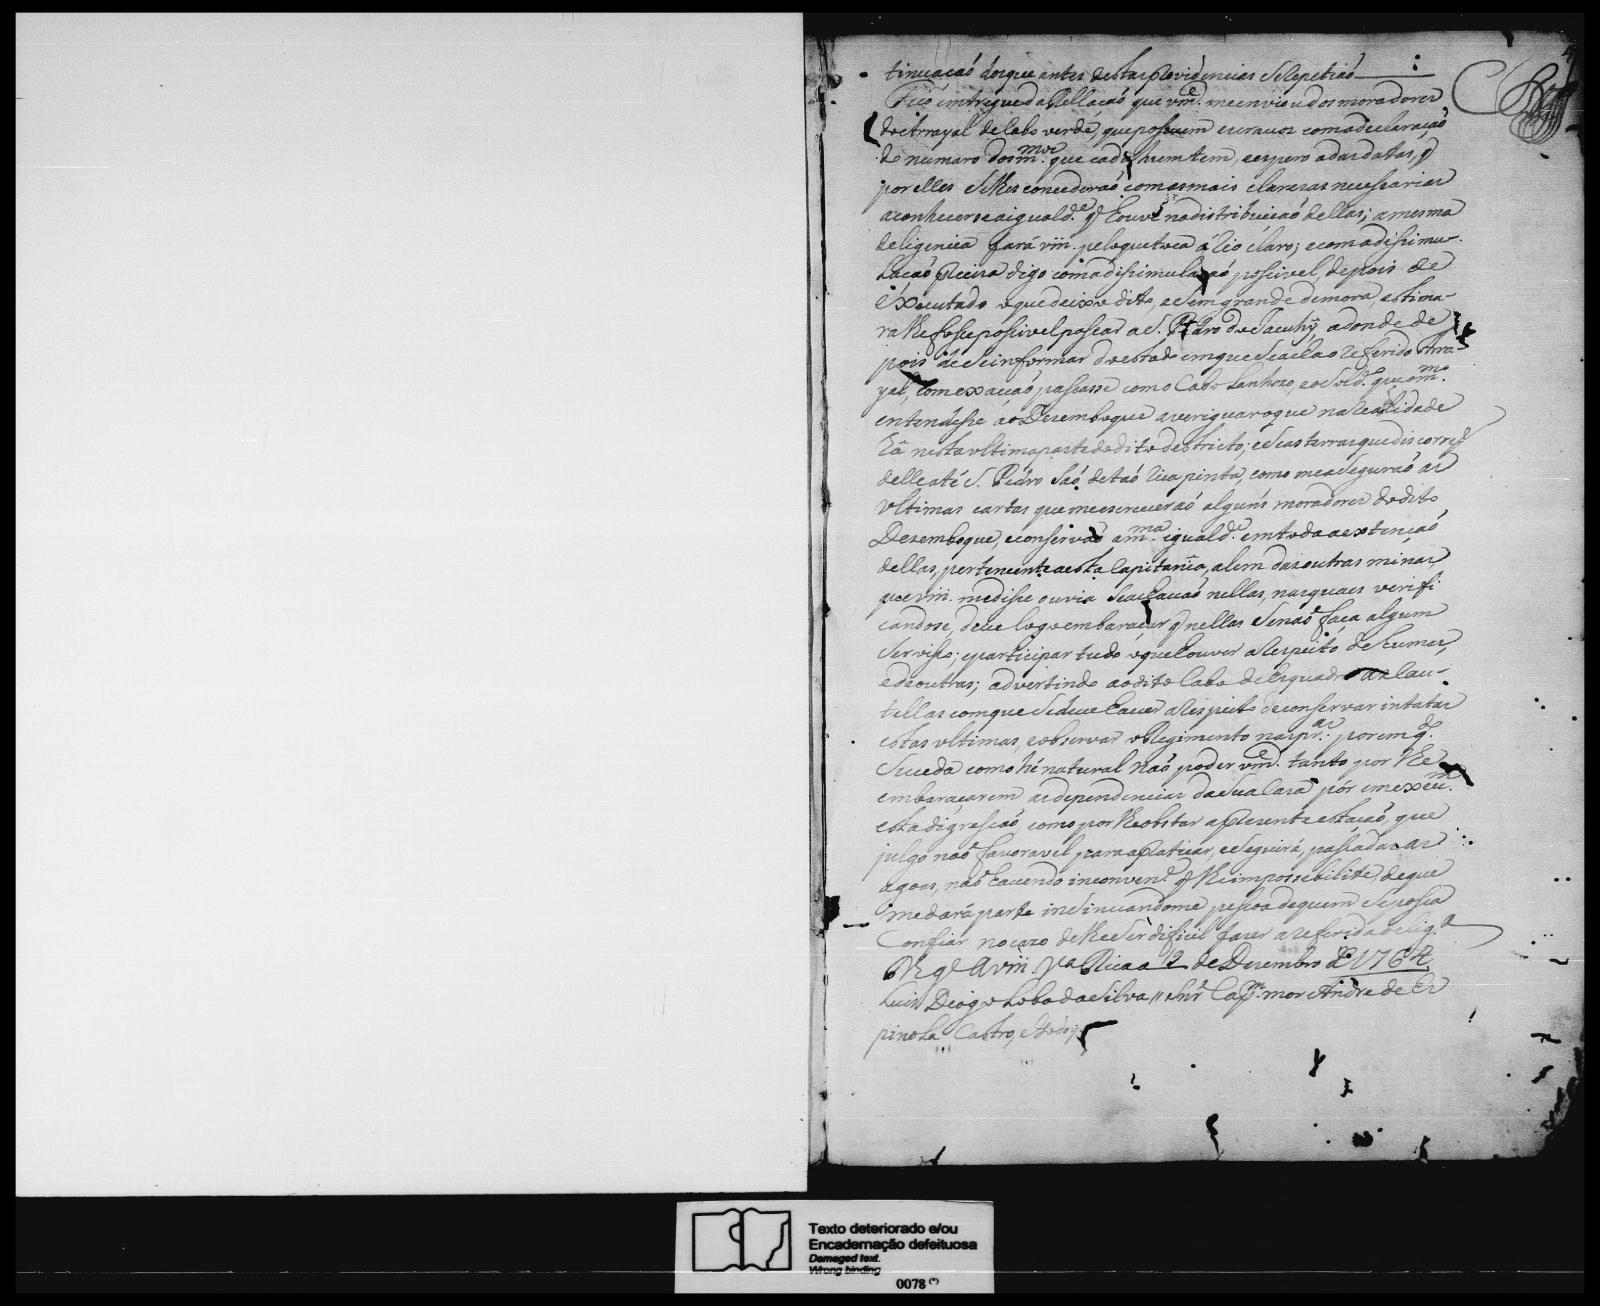 tinuacaó dosque antes destas providencias Se repetiaó
Fico entregue da Rellacaó que vm.ce me enviou dos moradores
do Arrayal de Cabo verde, que possuem escravos com a declaracaó
do numaro dos m.mos que cada hum tem, e espero a das datas, q
por elles Se lhes concederaó com as mais clarezas necessarias
a conhecerse a iguald.e q houve na distribuicaó dellas; a mesma
deligencia fará vm. pelo que toca á Rio claro; e com a dissimu-
lacaó digo com a dissimulacaó possivel, depois de
executado o que deixo dito, e Sem grande demora, estima-
ra lhe fosse possivel passar a S. Pedro de Jacuhy adonde de
pois de Se informar do estado em que Se acha o referido Arra-
yal, com exacaó passasse com o Cabo Lanhozo, e o Sold.o que o m.mo
entendesse ao Dezemboque averiguar o que na realidade
há nesta ultima parte do dito destricto; e Se as terras que discorrem
delle até S. Pedro Saó de taó rica pinta, como me aSeguraó as
ultimas cartas que me escreveraó alguns moradores do dito
Dezemboque, e conservaó a m.ma iguald.e em toda a extencaó
dellas, pertencente a esta Capitania, alem das outras minas
que vm. me disse ouvia Se achavaó nellas, nas quaes verifi
candose, deve logo embaracar q nellas Se naó faca algum
Servisso; e participar tudo o que houver a Respeito de humas,
e de outras; advertindo ao dito Cabo de Esquadra as Cau-
tellas com que Se deve haver a Respeito de conservar intatas
estas ultimas, e observar o Regimento nas pr.as: porem q.do
Suceda como hé natural Naó poder vm.ce tanto por lhe
embaracarem as dependencias da Sua Caza pôr em execu.m
esta digressaó como por lhe obstar a prezente estacaó, que
julgo naó favoravel para a praticar, e Seguirá, passadas as
agoas, naó havendo inconven.e q lhe impossebilite, de que
me dará parte insinuandome pessoa de quem Se possa
Confiar no cazo de lhe Ser dificil fazer a referida delig.a
D.s g.e a vm. V.a Rica a 19 de Dezembro de 1764
Luis Diogo Lobo da Silva // Snr. Cap.m mor Andre de Es
pinola Castro, 
Texto deteriorado e/ou
Encadernação defeituosa
Damaged text.
Wrong binding
0078 (*)